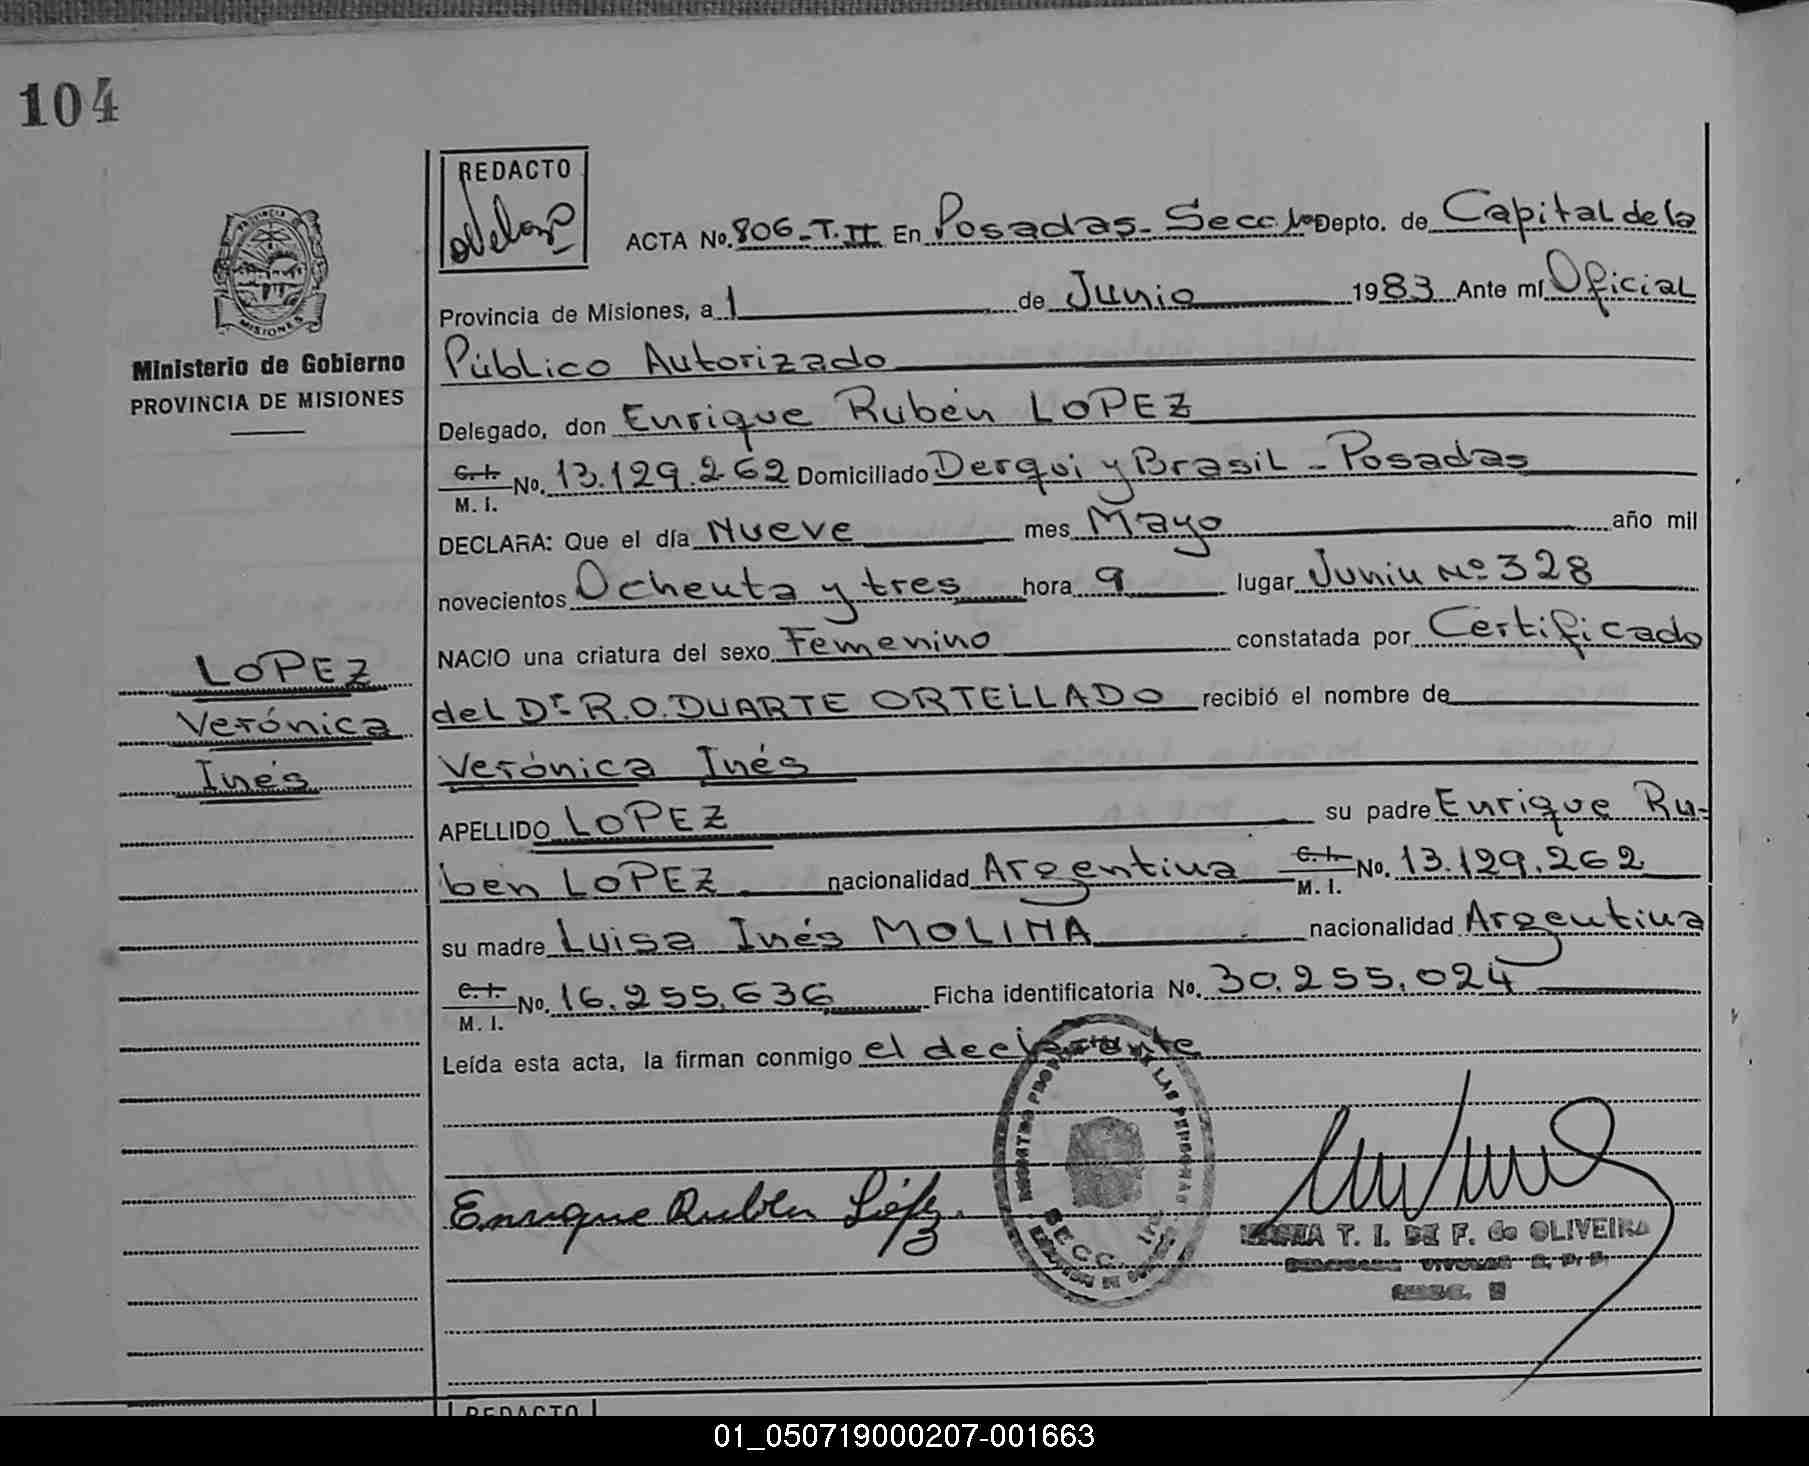 104
REDACTO
PROVINCIA
MISIONES
Ministerio de Gobierno
PROVINCIA DE MISIONES
LOPEZ
Verónica
Inés
ACTA No. 806-T.II En Posadas-Secc.1ª Depto. de Capital de la
Provincia de Misiones, a 1 de Junio 1983 Ante mí Oficial
Público Autorizado
Delegado, don Enrique Rubén LOPEZ
C.I. M.I. No. 13.129.262 Domiciliado Derqui y Brasil - Posadas
DECLARA: Que el día Nueve mes Mayo año mil
novecientos Ochenta y tres hora 9 lugar Junin Nº 328
NACIO una criatura del sexo Femenino constatada por Certificado
del Dr. R.O. DUARTE ORTELLADO recibió el nombre de
Verónica Inés
APELLIDO LOPEZ su padre Enrique Ru-
ben LOPEZ nacionalidad Argentina C.I. M.I. No. 13.129.262
su madre Luisa Inés MOLINA nacionalidad Argentina
C.I. M.I. No. 16.255.636 Ficha identificatoria No. 30.255.024
Leída esta acta, la firman conmigo el declarante
DE LAS PERSONAS
SECC. 1ra
Enrique Ruben López.
T. I. DE F. de OLIVEIRA
REDACTO
01_050719000207-001663